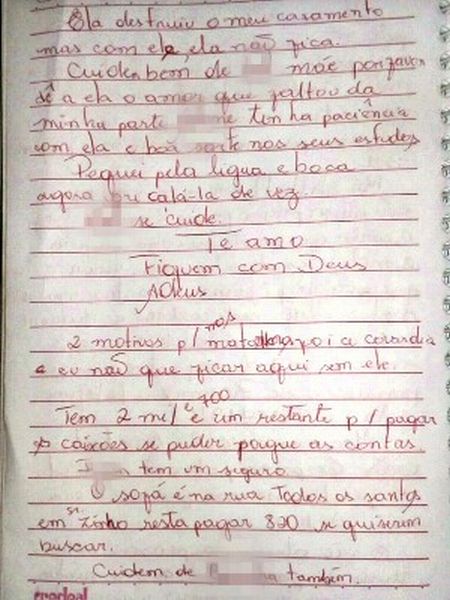 Ela destruiu o meu casamento
mas com ele, ela não fica.
Cuidem bem de mãe por favor
dê a ela o amor que faltou da
minha parte ne tenha paciência
com ela e boa sorte nos seus estudos
Pequei pela ligua e boca
agora vou calá-la de vez
se cuide.
Te amo
Fiquem com Deus
Adeus
2 motivos p/ nos foi a covardia
e eu não que ficar aqui sem ele.
Tem 2 mil e 700 e um restante p/ pagar
caixões se puder pague as contas.
tem um seguro
O sofá é na rua Todos os santos
em sr. Zinho resta pagar 820 se quiserem
buscar.
Cuidem de a também.